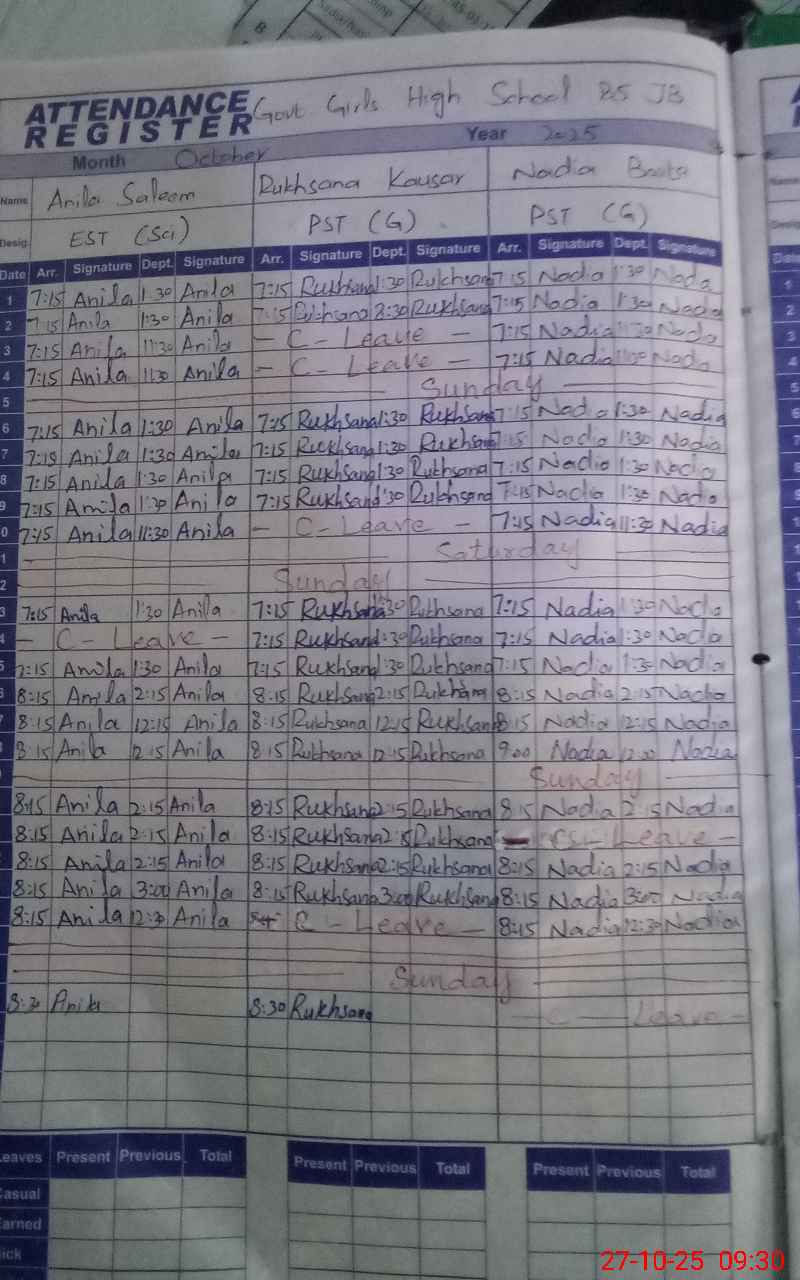 ATTENDANCE REGISTER Govt Girls High School 85 JB
Year 2025
Month October
Name Anila Saleem Rukhsana Kausar Nadia
Desig. EST (Sci) PST (G) PST (G)
Date Arr. Signature Dept. Signature Arr. Signature Dept. Signature Arr. Signature Dept. Signature
1 7:15 Anila 1:30 Anila 7:15 Rukhsana 1:30 Rukhsana 7:15 Nadia 1:30 Nadia
2 7:15 Anila 1:30 Anila 7:15 Rukhsana 2:30 Rukhsana 7:15 Nadia 1:30 Nadia
3 7:15 Anila 11:30 Anila - C - Leave - 7:15 Nadia Nadia
4 7:15 Anila 1130 Anila - C - Leave - 7:15 Nadia Nadia
5 Sunday
6 7:15 Anila 1:30 Anila 7:15 Rukhsana 1:30 Rukhsana 7:15 Nadia 1:30 Nadia
7 7:15 Anila 1:30 Anila 7:15 Rukhsana 1:30 Rukhsana 7:15 Nadia 1:30 Nadia
8 7:15 Anila 1:30 Anila 7:15 Rukhsana 1:30 Rukhsana 7:15 Nadia 1:30 Nadia
9 7:15 Anila 1:30 Anila 7:15 Rukhsana 1:30 Rukhsana 7:15 Nadia 1:30 Nadia
0 7:15 Anila 11:30 Anila - C - Leave - 7:15 Nadia 11:30 Nadia
1 Saturday
2 Sunday
3 7:15 Anila 1:30 Anila 7:15 Rukhsana 1:30 Rukhsana 7:15 Nadia 1:30 Nadia
4 - C - Leave - 7:15 Rukhsana 1:30 Rukhsana 7:15 Nadia 1:30 Nadia
5 7:15 Anila 1:30 Anila 7:15 Rukhsana 1:30 Rukhsana 7:15 Nadia 1:30 Nadia
8:15 Anila 2:15 Anila 8:15 Rukhsana 2:15 Rukhsana 8:15 Nadia 2:15 Nadia
8:15 Anila 12:15 Anila 8:15 Rukhsana 12:15 Rukhsana 8:15 Nadia 12:15 Nadia
8:15 Anila 12 15 Anila 8:15 Rukhsana 12:15 Rukhsana 9:00 Nadia 12:00 Nadia
Sunday
8:15 Anila 2:15 Anila 8:15 Rukhsana 2:15 Rukhsana 8:15 Nadia 2:15 Nadia
8:15 Anila 2:15 Anila 8:15 Rukhsana 2:15 Rukhsana Leave -
8:15 Anila 2:15 Anila 8:15 Rukhsana 2:15 Rukhsana 8:15 Nadia 2:15 Nadia
8:15 Anila 3:00 Anila 8:15 Rukhsana 3:00 Rukhsana 8:15 Nadia 3:00 Nadia
8:15 Anila 12:30 Anila C - Leave - 8:15 Nadia 12:30 Nadia
Sunday
8:30 Anila 8:30 Rukhsana - C - Leave -
Leaves Present Previous Total Present Previous Total Present Previous Total
Casual
Earned
Sick
27-10-25 09:30